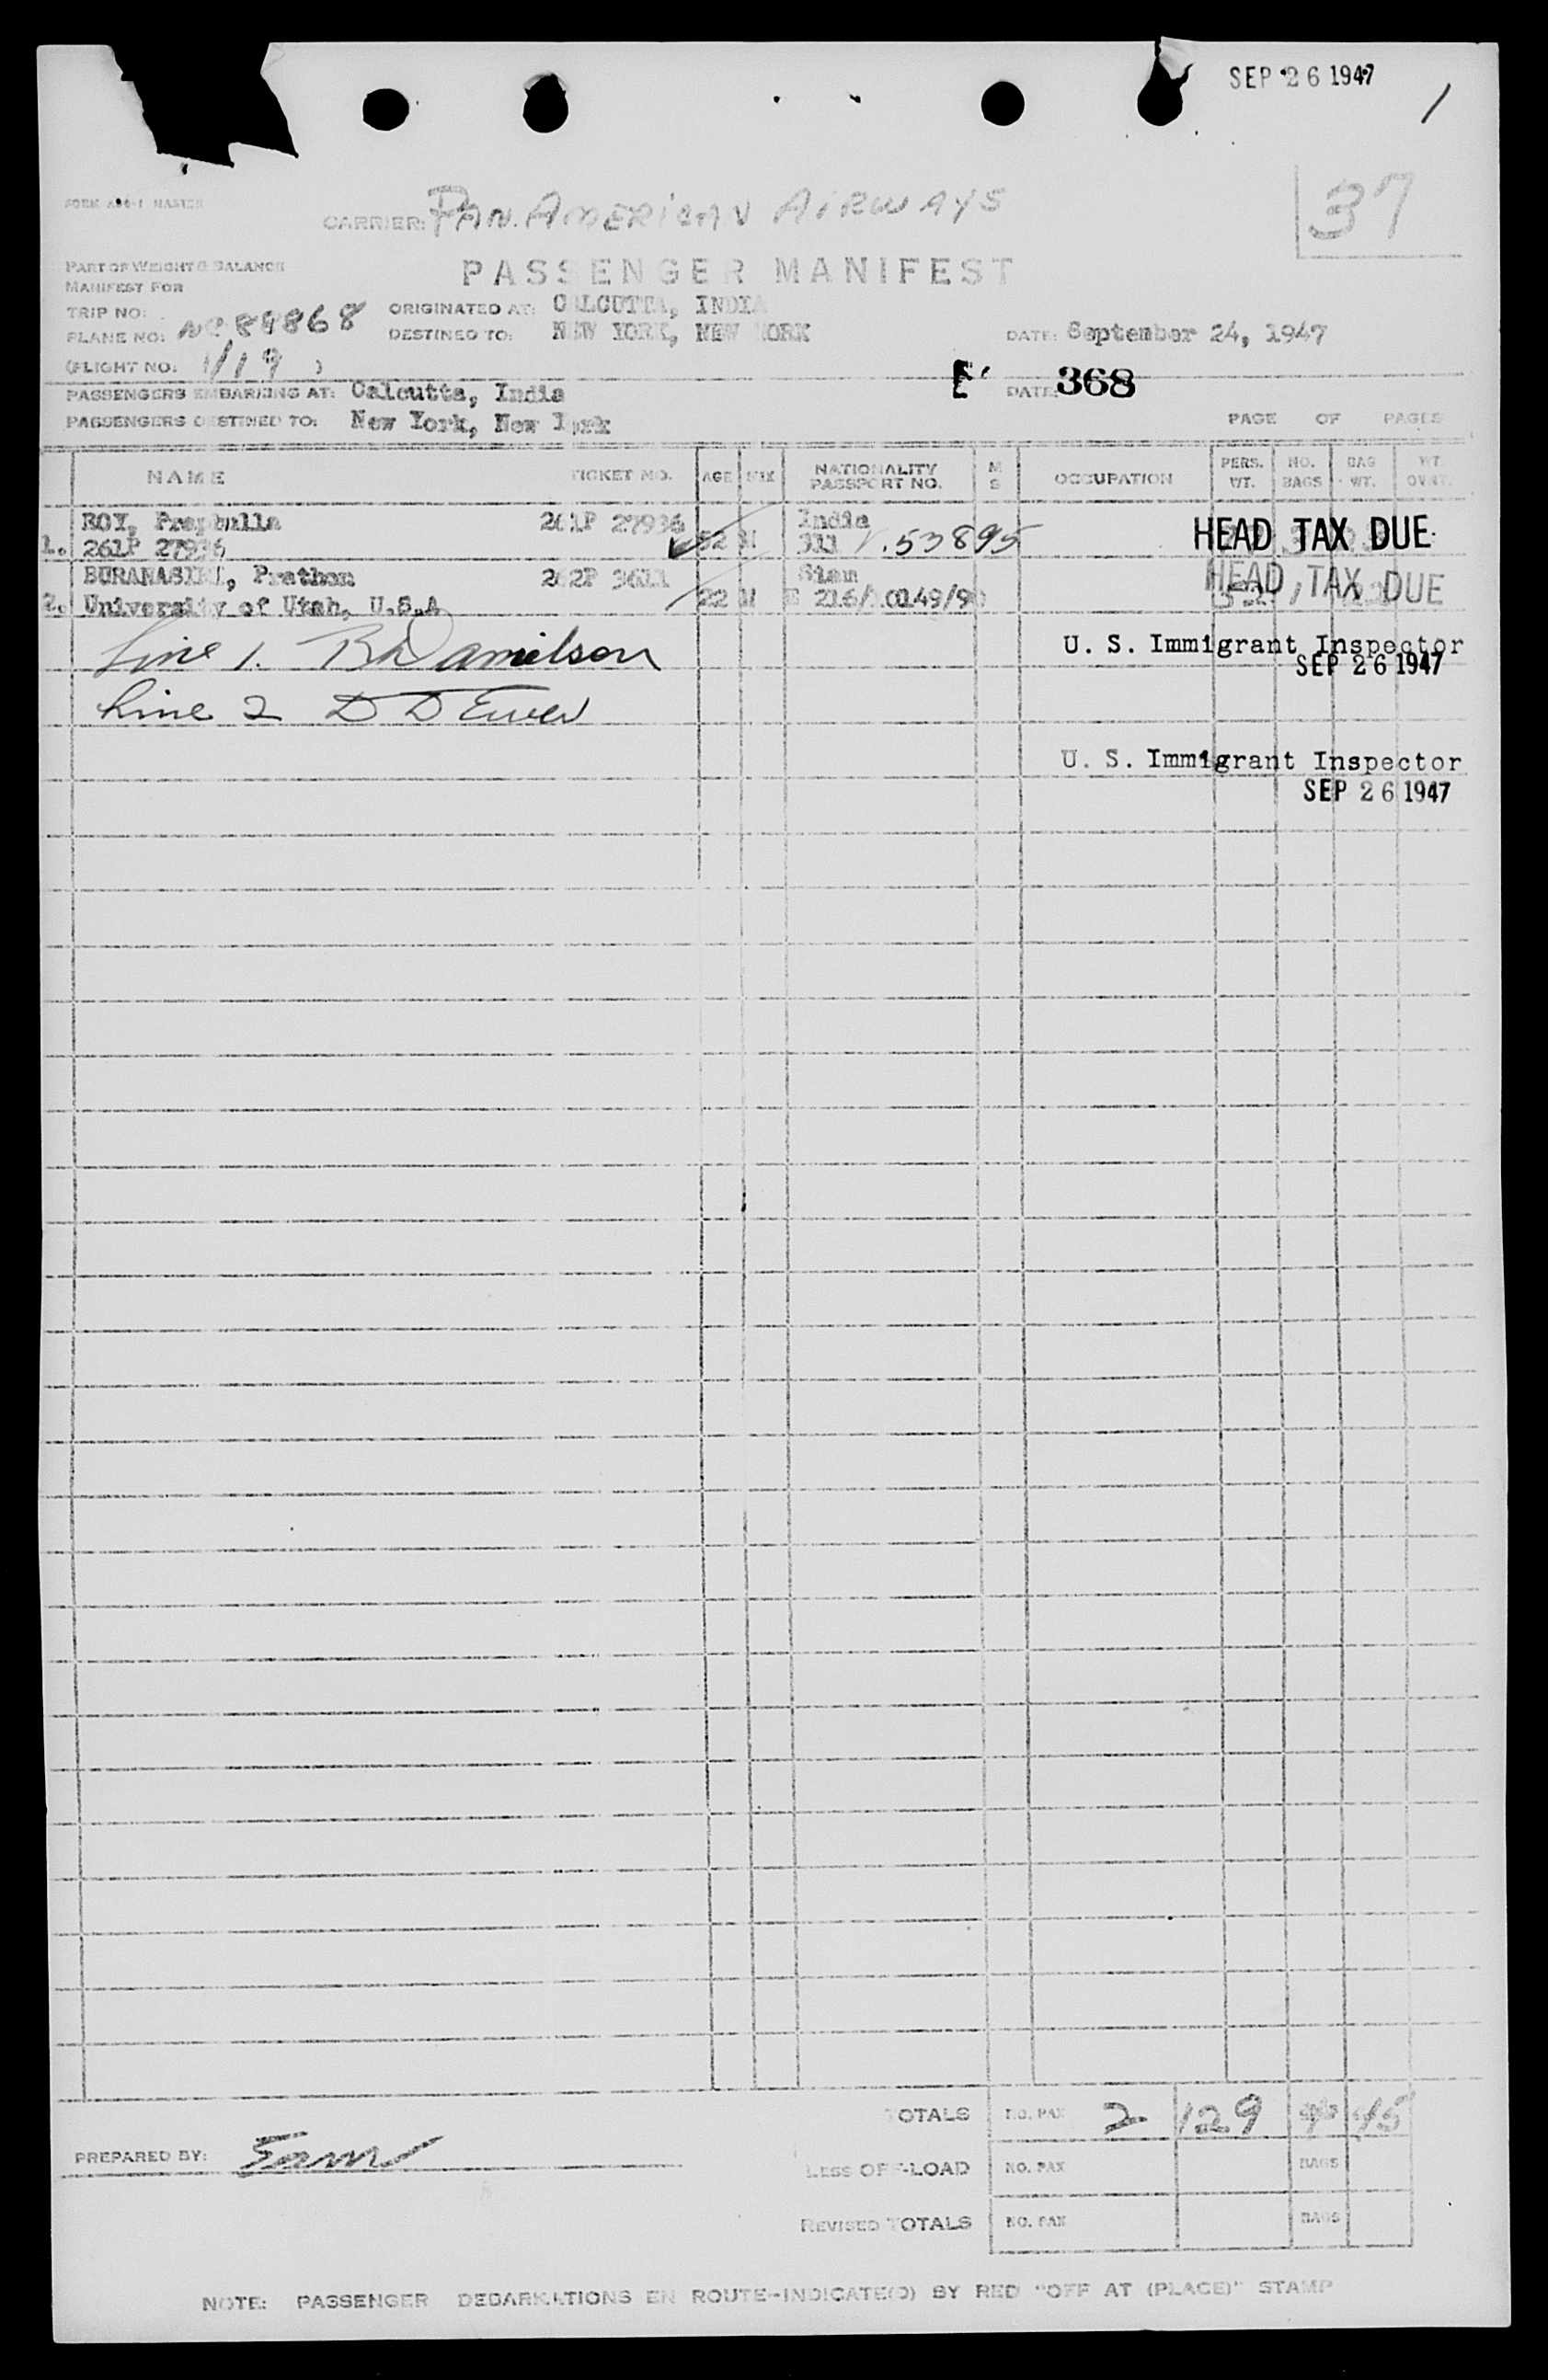 SEP 26 1947
1
37
CARRIER: PAN. AMERICAN AIRWAYS
PART OF WEIGHT & BALANCE
MANIFEST FOR
PASSENGER MANIFEST
TRIP NO:
ORIGINATED AT: CALCUTTA, INDIA
PLANE NO: NC 88868
DESTINED TO: NEW YORK, NEW YORK
DATE: September 24, 1947
(FLIGHT NO. 1/19 )
PASSENGERS EMBARKING AT: Calcutta, India
DATE: 368
PASSENGERS DESTINED TO: New York, New York
PAGE OF PAGES
NAME TICKET NO. AGE SEX NATIONALITY PASSPORT NO. M S OCCUPATION PERS. WT. NO. BAGS BAG WT. WT.
ROY, 261P 27936 India
1. 261P 27936 52 M .53895 HEAD TAX DUE
BURANASIRI, Prathom 262P 3611 Siam
2. University of Utah, U.S.A 22 M HEAD TAX DUE
Line 1. Danielson
U. S. Immigrant Inspector
SEP 26 1947
Line 2 D D
U. S. Immigrant Inspector
SEP 26 1947
TOTALS NO. PAX 2 129 45
PREPARED BY:
LESS OFF-LOAD NO. PAX BAGS
REVISED TOTALS NO. PAX BAGS
NOTE: PASSENGER DEBARKATIONS EN ROUTE--INDICATE(D) BY RED "OFF AT (PLACE)" STAMP